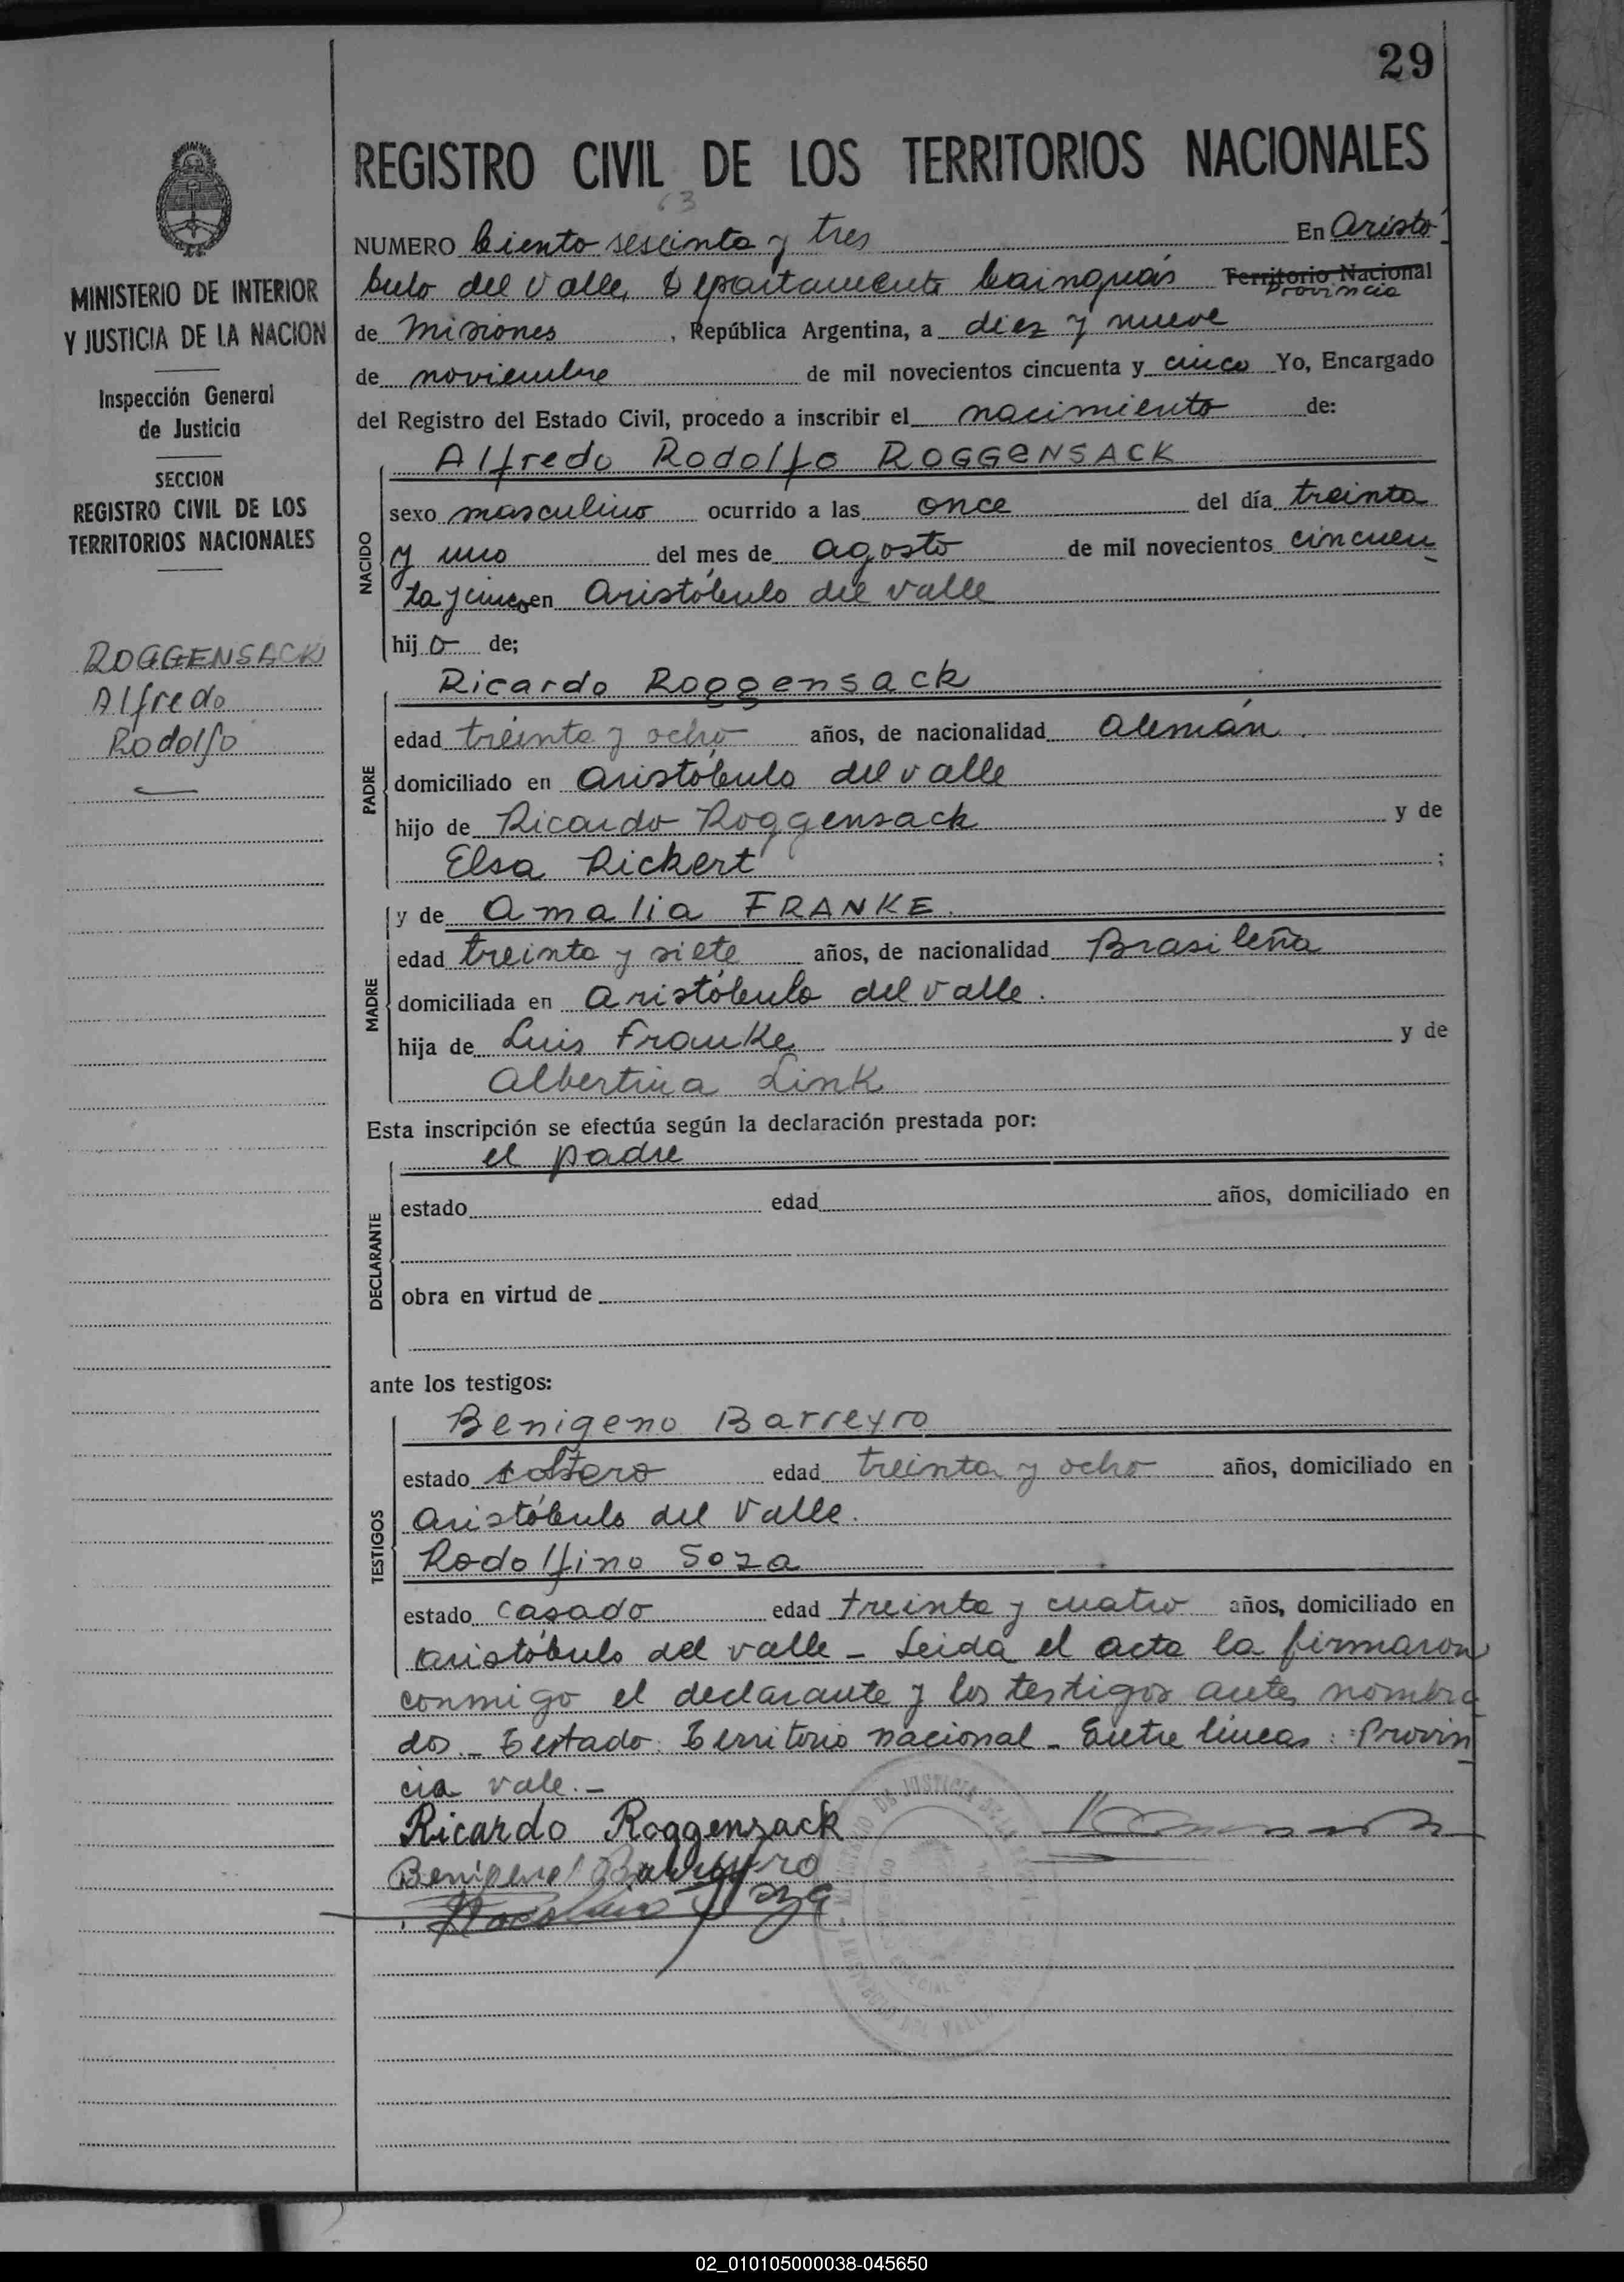 29
REGISTRO CIVIL DE LOS TERRITORIOS NACIONALES
63
NUMERO Ciento sescinta y tres En Aristó
bulo del Valle, Departamento Cainguás Territorio Nacional
Provincia
de Misiones, República Argentina, a diez y nueve
de noviembre de mil novecientos cincuenta y cinco Yo, Encargado
del Registro del Estado Civil, procedo a inscribir el nacimiento de:
NACIDO
Alfredo Rodolfo ROGGENSACK
sexo masculino ocurrido a las once del día treinta
y uno del mes de agosto de mil novecientos cincuen
ta y cinco en Aristóbulo del Valle
hijo de;
PADRE
Ricardo Roggensack
edad treinta y ocho años, de nacionalidad Alemán.
domiciliado en Aristóbulo del Valle
hijo de Ricardo Roggensack y de
Elsa Rickert ;
MADRE
y de Amalia FRANKE.
edad treinta y siete años, de nacionalidad Brasileña
domiciliada en Aristóbulo del Valle.
hija de Luis Franke y de
Albertina Link
Esta inscripción se efectúa según la declaración prestada por:
DECLARANTE
el padre
estado edad años, domiciliado en
obra en virtud de
ante los testigos:
TESTIGOS
Benigeno Barreyro
estado soltero edad treinta y ocho años, domiciliado en
Aristóbulo del Valle.
Rodolfino Soza
estado casado edad treinta y cuatro años, domiciliado en
Aristóbulo del Valle - Leida el acta la firmaron
conmigo el declarante y los testigos antes nombra
dos.- Testado: Territorio nacional - Entre lineas: Provin
cia vale.-
Ricardo Roggensack
MINISTERIO DE INTERIOR
Y JUSTICIA DE LA NACION
Inspección General
de Justicia
SECCION
REGISTRO CIVIL DE LOS
TERRITORIOS NACIONALES
ROGGENSACK
Alfredo
Rodolfo
02_010105000038-045650